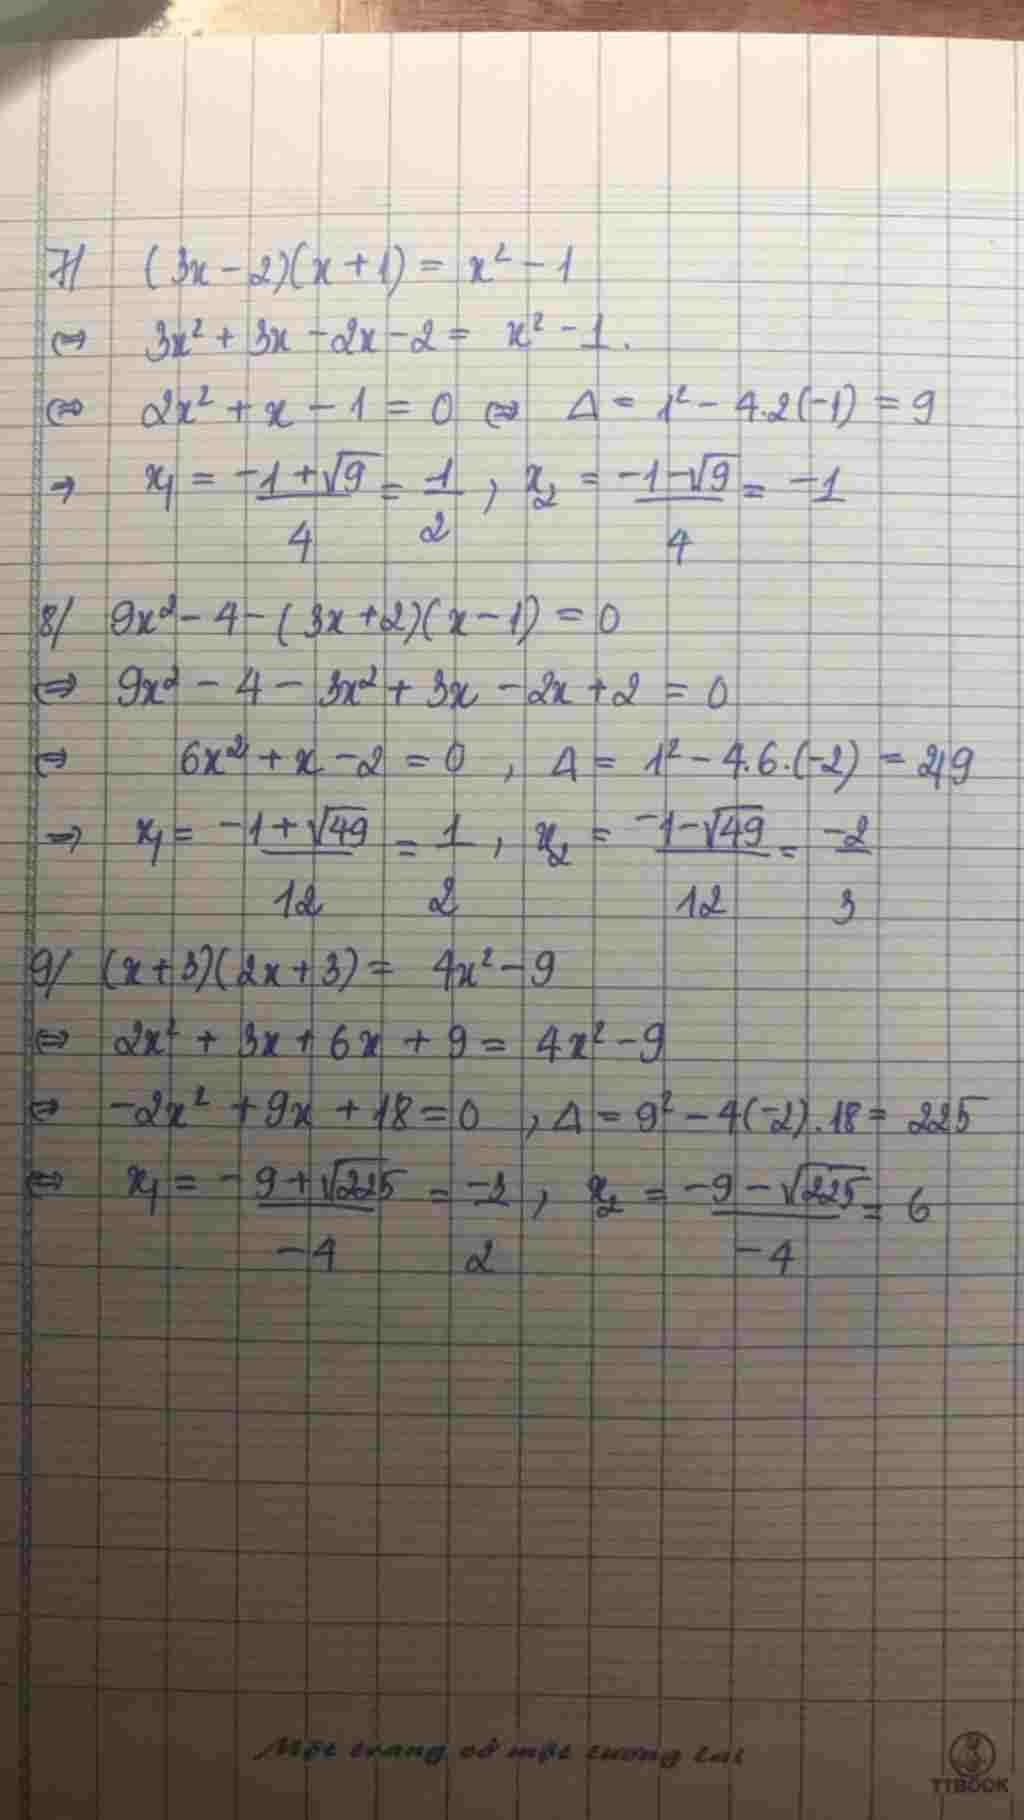 7/ (3x - 2)(x + 1) = x² - 1
⇔ 3x² + 3x - 2x - 2 = x² - 1.
⇔ 2x² + x - 1 = 0 ⇔ Δ = 1² - 4.2(-1) = 9
→ x₁ = (-1 + √9)/4 = 1/2 , x₂ = (-1 - √9)/4 = -1
8/ 9x² - 4 - (3x + 2)(x - 1) = 0
⇔ 9x² - 4 - 3x² + 3x - 2x + 2 = 0
⇔ 6x² + x - 2 = 0 , Δ = 1² - 4.6.(-2) = 49
⇒ x₁ = (-1 + √49)/12 = 1/2 , x₂ = (-1 - √49)/12 = -2/3
9/ (x + 3)(2x + 3) = 4x² - 9
⇔ 2x² + 3x + 6x + 9 = 4x² - 9
⇔ -2x² + 9x + 18 = 0 , Δ = 9² - 4(-2).18 = 225
⇔ x₁ = (-9 + √225)/-4 = -3/2 , x₂ = (-9 - √225)/-4 = 6
Một trang vở một tương lai
TTBOOK